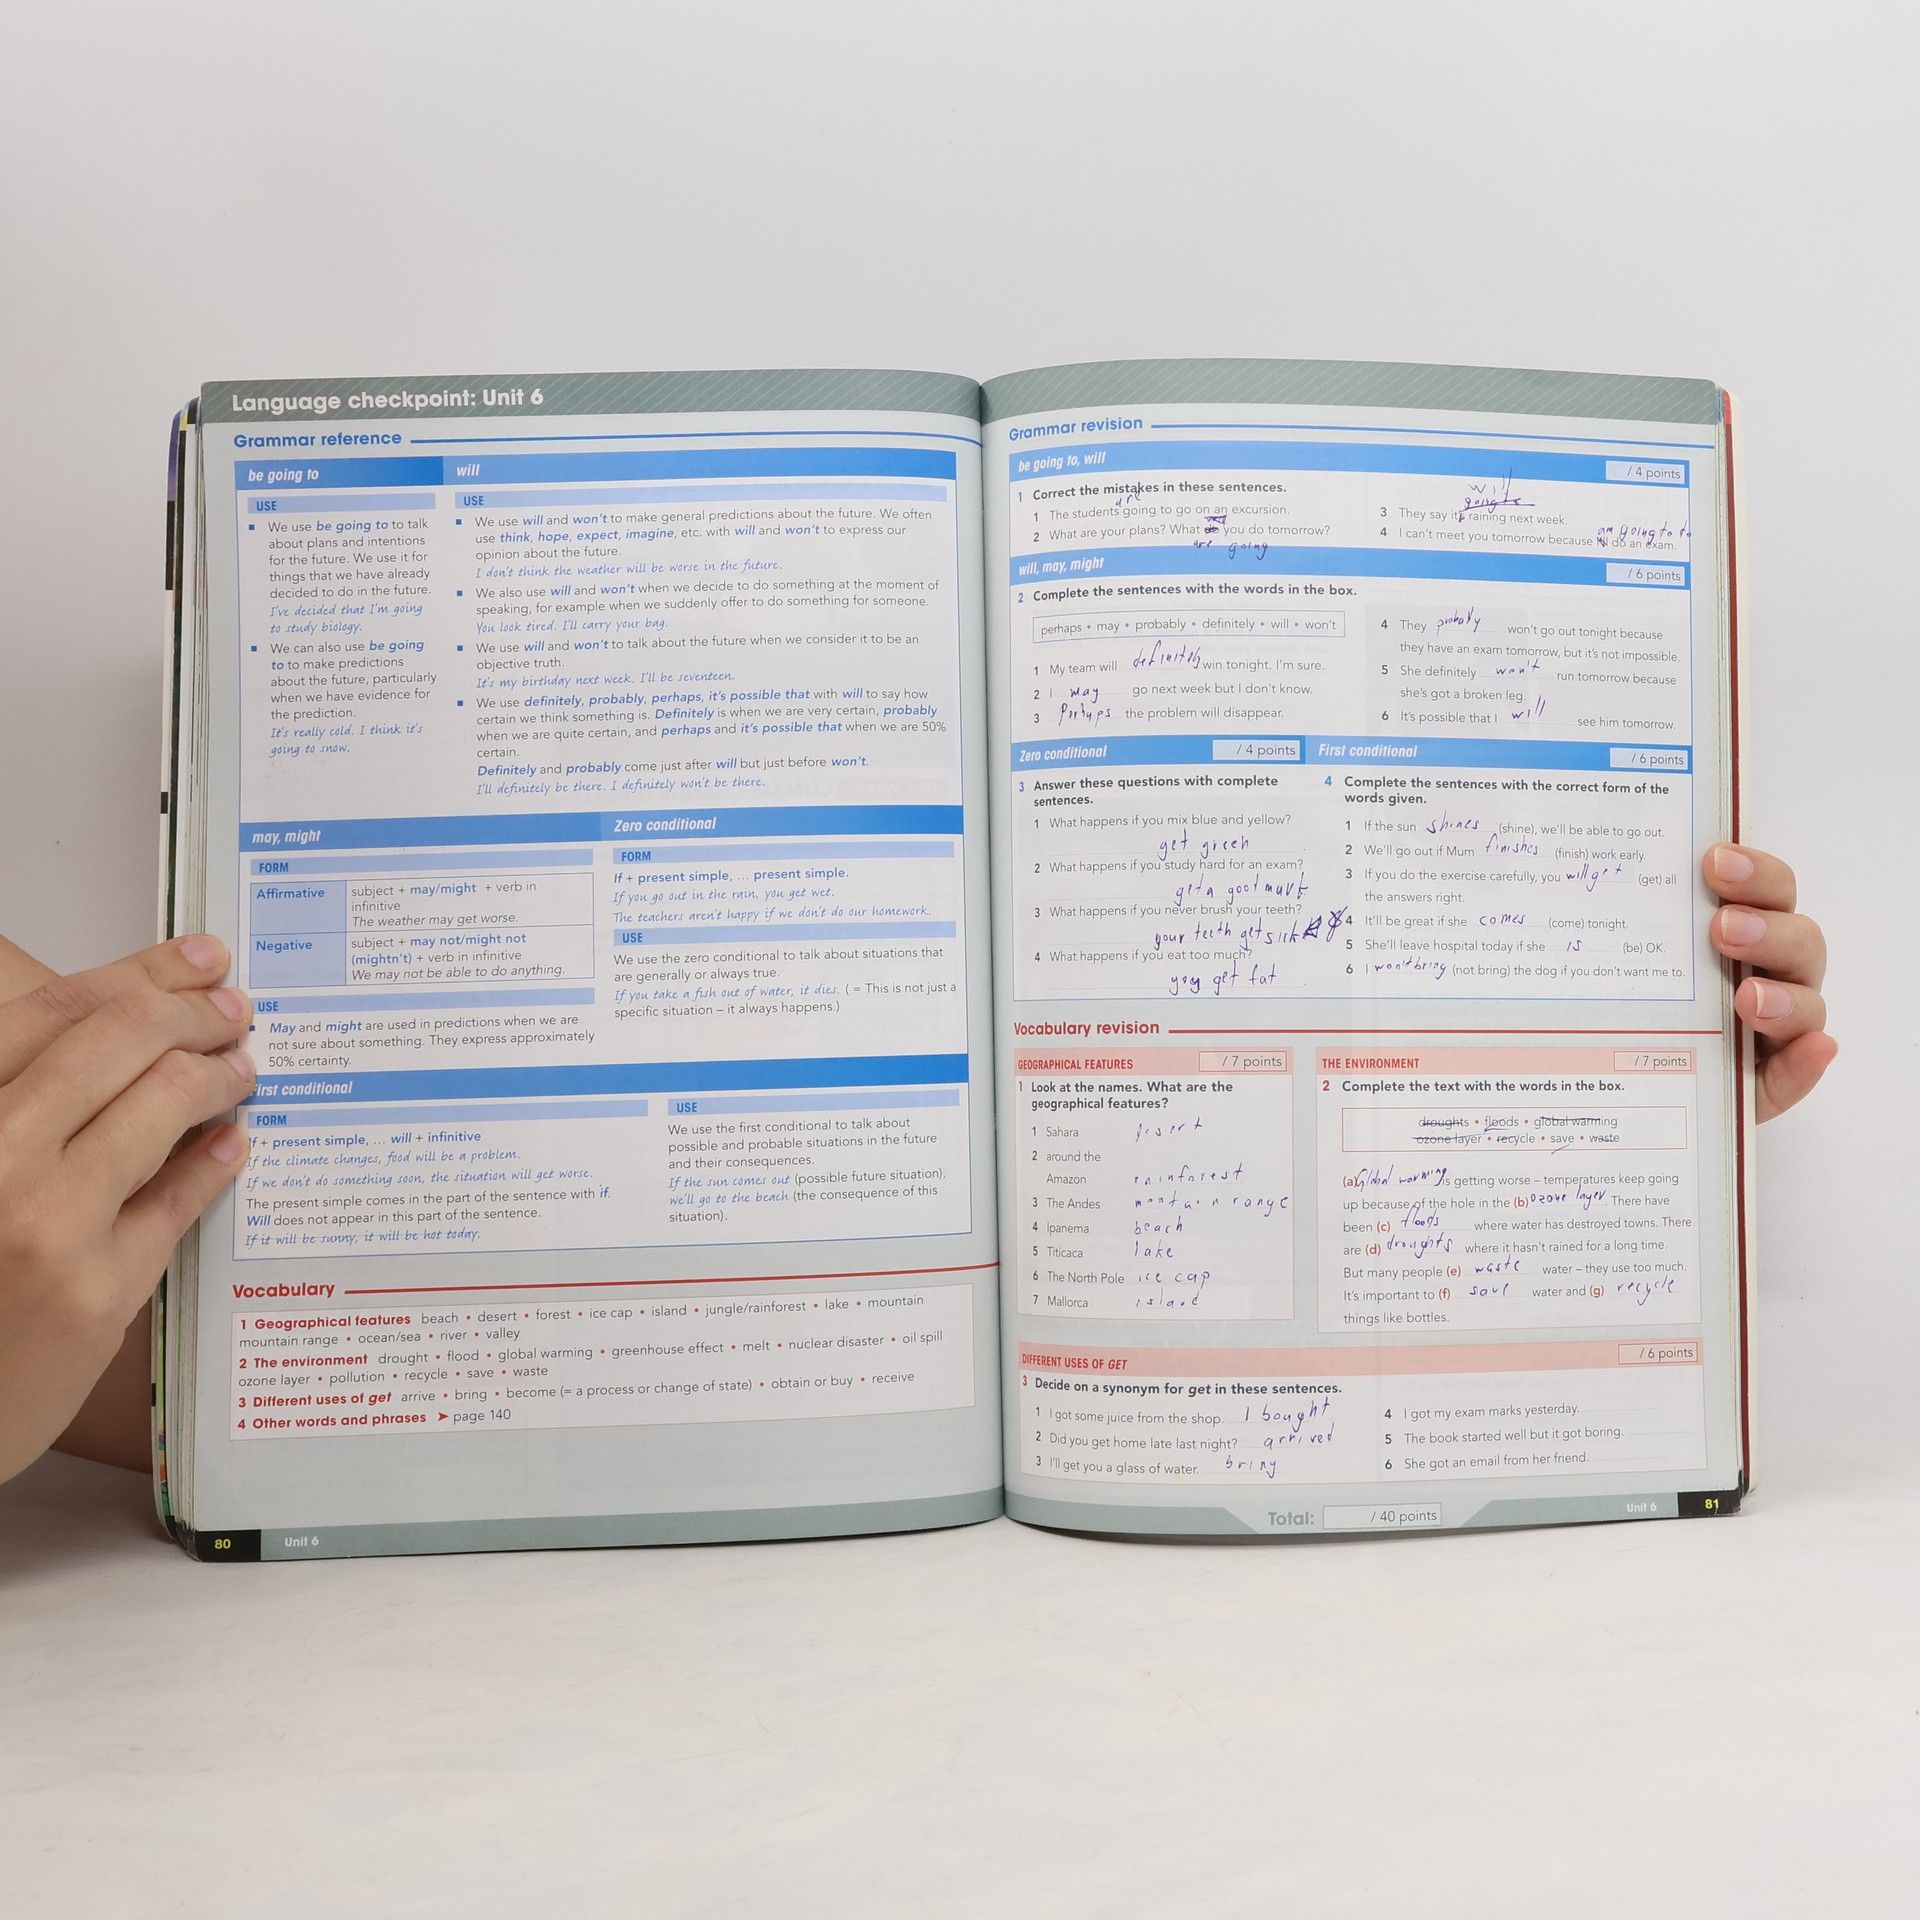 Language checkpoint: Unit 6
Grammar reference
be going to
USE
We use be going to to talk
about plans and intentions
for the future. We use it for
things that we have already
decided to do in the future.
I've decided that I'm going
to study biology.
We can also use be going
to to make predictions
about the future, particularly
when we have evidence for
the prediction.
It's really cold. I think it's
going to snow.
will
USE
We use will and won't to make general predictions about the future. We often
use think, hope, expect, imagine, etc. with will and won't to express our
opinion about the future.
I don't think the weather will be worse in the future.
We also use will and won't when we decide to do something at the moment of
speaking, for example when we suddenly offer to do something for someone.
You look tired. I'll carry your bag.
We use will and won't to talk about the future when we consider it to be an
objective truth.
It's my birthday next week. I'll be seventeen.
We use definitely, probably, perhaps, it's possible that with will to say how
certain we think something is. Definitely is when we are very certain, probably
when we are quite certain, and perhaps and it's possible that when we are 50%
certain.
Definitely and probably come just after will but just before won't.
I'll definitely be there. I definitely won't be there.
may, might
FORM
Affirmative
subject + may/might + verb in
infinitive
The weather may get worse.
Negative
subject + may not/might not
(mightn't) + verb in infinitive
We may not be able to do anything.
USE
May and might are used in predictions when we are
not sure about something. They express approximately
50% certainty.
Zero conditional
FORM
If + present simple, ... present simple.
If you go out in the rain, you get wet.
The teachers aren't happy if we don't do our homework.
USE
We use the zero conditional to talk about situations that
are generally or always true.
If you take a fish out of water, it dies. ( = This is not just a
specific situation – it always happens.)
First conditional
FORM
If + present simple, ... will + infinitive
If the climate changes, food will be a problem.
If we don't do something soon, the situation will get worse.
The present simple comes in the part of the sentence with if.
Will does not appear in this part of the sentence.
If it will be sunny, it will be hot today.
USE
We use the first conditional to talk about
possible and probable situations in the future
and their consequences.
If the sun comes out (possible future situation),
we'll go to the beach (the consequence of this
situation).
Vocabulary
1 Geographical features beach • desert • forest • ice cap • island • jungle/rainforest • lake • mountain
mountain range • ocean/sea • river • valley
2 The environment drought • flood • global warming • greenhouse effect • melt • nuclear disaster • oil spill
ozone layer • pollution • recycle • save • waste
3 Different uses of get arrive • bring • become (= a process or change of state) • obtain or buy • receive
4 Other words and phrases ➤ page 140
80 Unit 6
Grammar revision
be going to, will / 4 points
1 Correct the mistakes in these sentences.
are
1 The students going to go on an excursion.
2 What are your plans? What you do tomorrow?
are going
will
going to
3 They say it's raining next week.
am going to do
4 I can't meet you tomorrow because do an exam.
will, may, might / 6 points
2 Complete the sentences with the words in the box.
perhaps • may • probably • definitely • will • won't
1 My team will definitely win tonight. I'm sure.
2 I may go next week but I don't know.
3 Perhaps the problem will disappear.
4 They probably won't go out tonight because
they have an exam tomorrow, but it's not impossible.
5 She definitely won't run tomorrow because
she's got a broken leg.
6 It's possible that I will see him tomorrow.
Zero conditional / 4 points
3 Answer these questions with complete
sentences.
1 What happens if you mix blue and yellow?
get green
2 What happens if you study hard for an exam?
get a good mark
3 What happens if you never brush your teeth?
your teeth get sick
4 What happens if you eat too much?
you get fat
First conditional / 6 points
4 Complete the sentences with the correct form of the
words given.
1 If the sun shines (shine), we'll be able to go out.
2 We'll go out if Mum finishes (finish) work early.
3 If you do the exercise carefully, you will get (get) all
the answers right.
4 It'll be great if she comes (come) tonight.
5 She'll leave hospital today if she is (be) OK.
6 I won't bring (not bring) the dog if you don't want me to.
Vocabulary revision
GEOGRAPHICAL FEATURES / 7 points
1 Look at the names. What are the
geographical features?
1 Sahara desert
2 around the
Amazon rainforest
3 The Andes montain range
4 Ipanema beach
5 Titicaca lake
6 The North Pole ice cap
7 Mallorca island
THE ENVIRONMENT / 7 points
2 Complete the text with the words in the box.
droughts • floods • global warming
ozone layer • recycle • save • waste
(a) Global warming is getting worse – temperatures keep going
up because of the hole in the (b) ozone layer. There have
been (c) floods where water has destroyed towns. There
are (d) droughts where it hasn't rained for a long time.
But many people (e) waste water – they use too much.
It's important to (f) save water and (g) recycle
things like bottles.
DIFFERENT USES OF GET / 6 points
3 Decide on a synonym for get in these sentences.
1 I got some juice from the shop. I bought
2 Did you get home late last night? arrived
3 I'll get you a glass of water. bring
4 I got my exam marks yesterday.
5 The book started well but it got boring.
6 She got an email from her friend.
Total: / 40 points
Unit 6 81